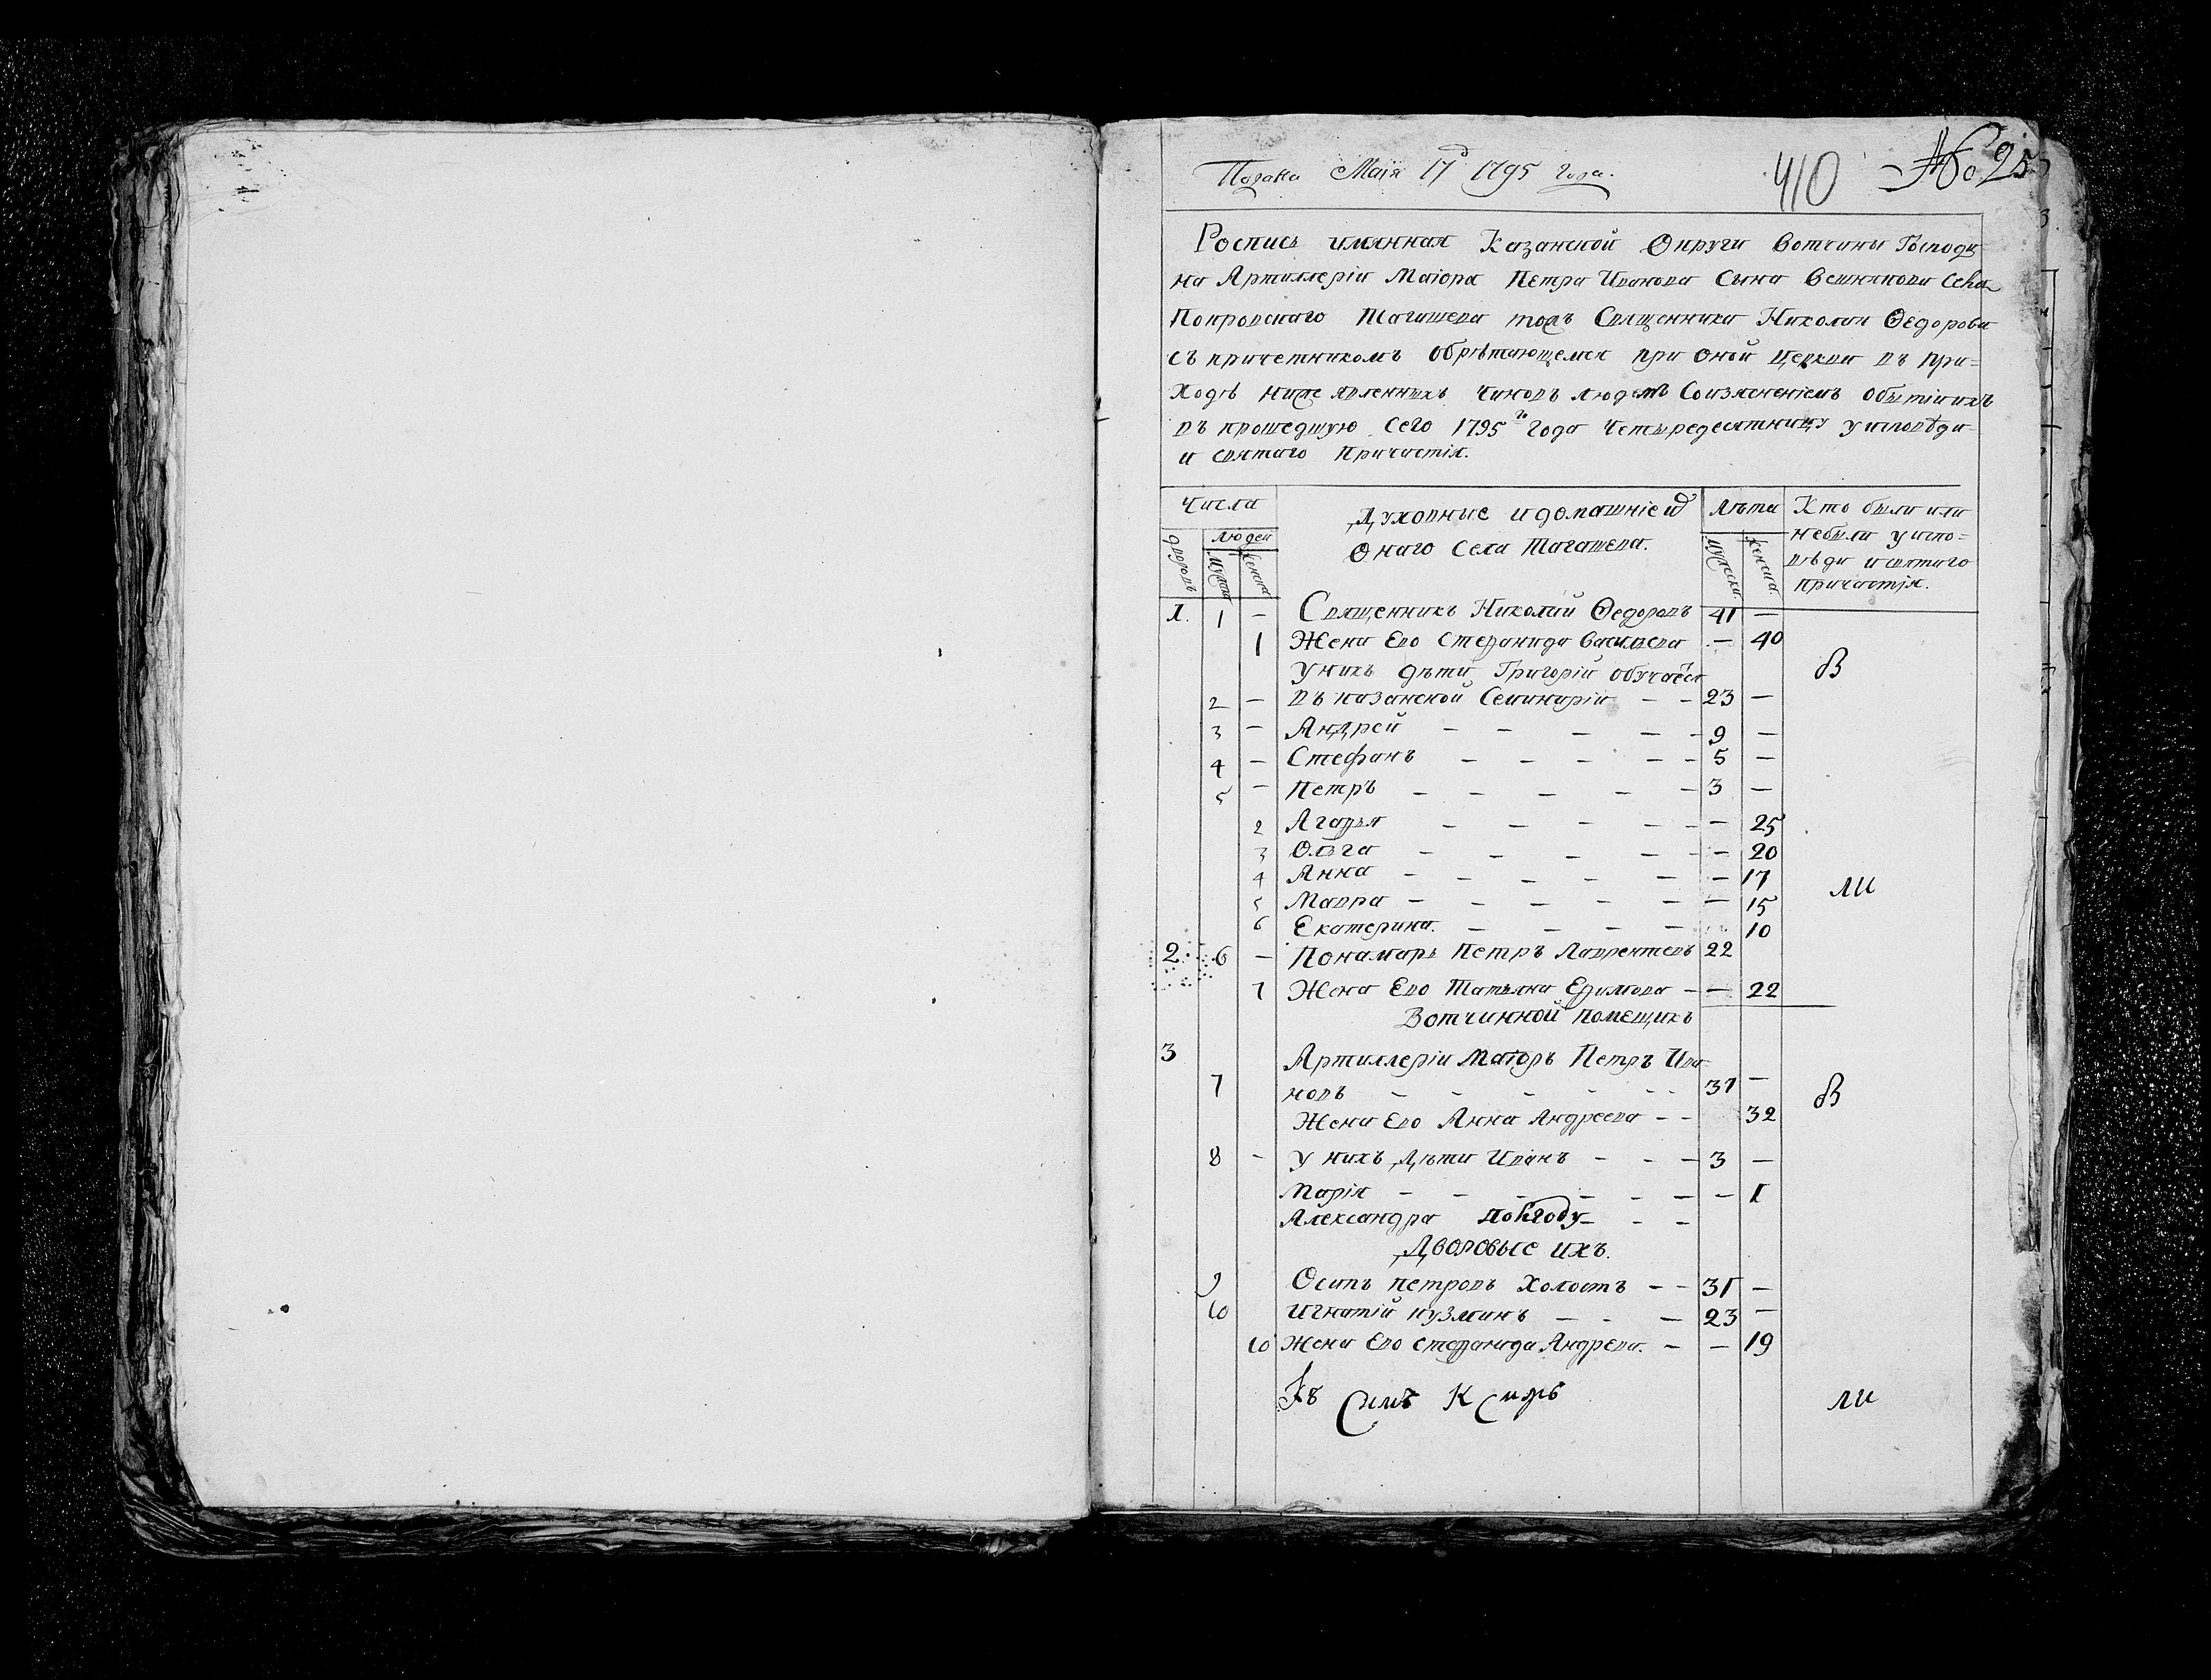 Подана Маія 17 д 1795 года.
410 № 25
Роспись имянная Казанской Округи вотчины Господи
на Артиллеріи Маіора Петра Иванова Сына Вешнякова Села
Покровскаго Тагашева тожъ Священника Николая Ѳедорова
съ причетникомъ обрѣтающемся при оной Церкви въ при-
ходѣ ниже явленныхъ чиновъ людемъ Соизяяненіемъ
въ прошедшую сего 1795 го года четыредесятницу у исповѣди
и святаго причастія.
Числа
Духовные и домашніе
Лѣта
Кто были или
дворовъ
людей
мужеска
женска
онаго Села Тагашева.
мужеска.
женска.
небыли у испо-
вѣди и святаго
причастія.
1. 1 — Священникъ Николай Ѳедоровъ 41 —
1 Жена Ево Стефанида Васильева — 40
У нихъ дѣти Григорій обучаёся
В
2 — въ казанской Семинаріи — — 23 —
3 — Андрей — — — — — 9 —
4 — Стефанъ — — — — — 5 —
5 — Петръ — — — — — 3 —
2 Агафья — — — — — — 25
3 Ольга — — — — — — 20
4 Анна — — — — — — 17
ли
5 Мавра — — — — — — 15
6 Екатерина. — — — — 10
2. 6 — Пономарь Петръ Лаврентевъ 22
7 Жена Ево Татьяна Ефимова — — 22
Вотчинной помещикъ
3 Артиллеріи Маіоръ Петръ Ива
7 новъ — — — — — 37 —
В
Жена Ево Анна Андреева — — 32
8 — У нихъ Дѣти Иванъ — — — 3 —
Марія — — — — — — — 1
Александра полгоду — — —
Дворовые ихъ.
9 Осипъ петровъ холостъ — — 31 —
10 Игнатій кузминъ — — — 23 —
10 Жена Ево стефанида Андрева. — — 19
Къ Симъ
ли